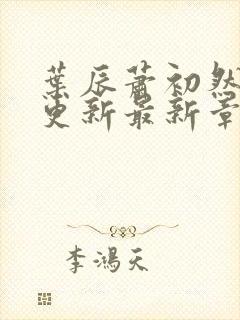 葉辰蕭初然
更新最新章
李鴻天